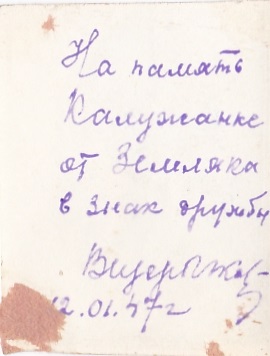 На память
Калужанке
от Земляка
в знак дружбы
12.01.47г